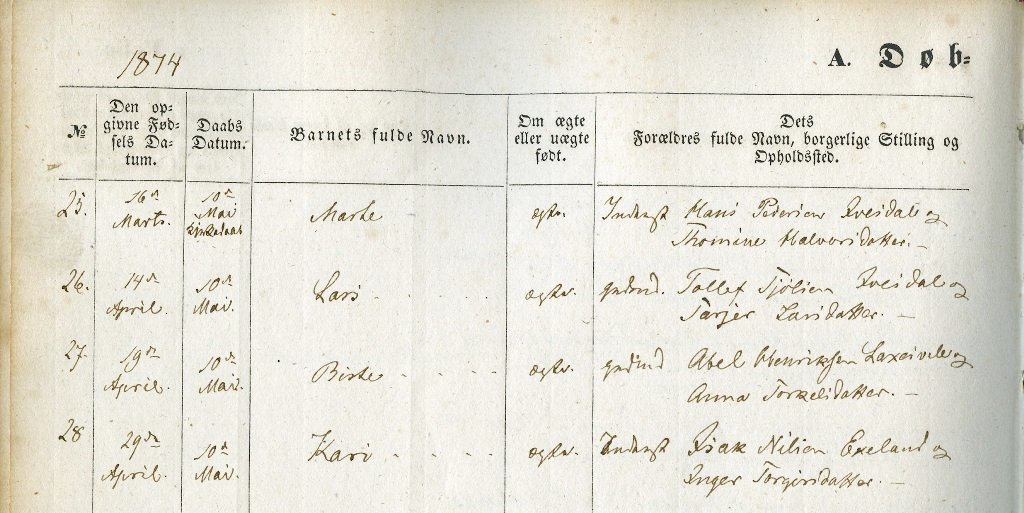 1874
A. Døb=
№
Den op-
givne Fød-
sels Da-
tum.
Daabs
Datum.
Barnets fulde Navn.
Om ægte
eller uægte
født.
Dets
Forældres fulde Navn, borgerlige Stilling og
Opholdssted.
25.
16de
Marts.
10de
Mai
Marte
ægte.
Inderst Hans Pedersen Kvisdal og
Thomine Halvorsdatter. –
26.
14de
April.
10de
Mai.
Lars
ægte.
gaardmd. Tollef Tjølsen Kvisdal og
Tarjer Larsdatter. –
27.
19de
April.
10de
Mai.
Birte
ægte.
gaardmd Abel Henriksen og
Anna Torkelsdatter. –
28
29de
April.
10de
Mai.
Kari
ægte.
Inderst Isak Nilsen Eikeland og
Inger Torgirsdatter. –